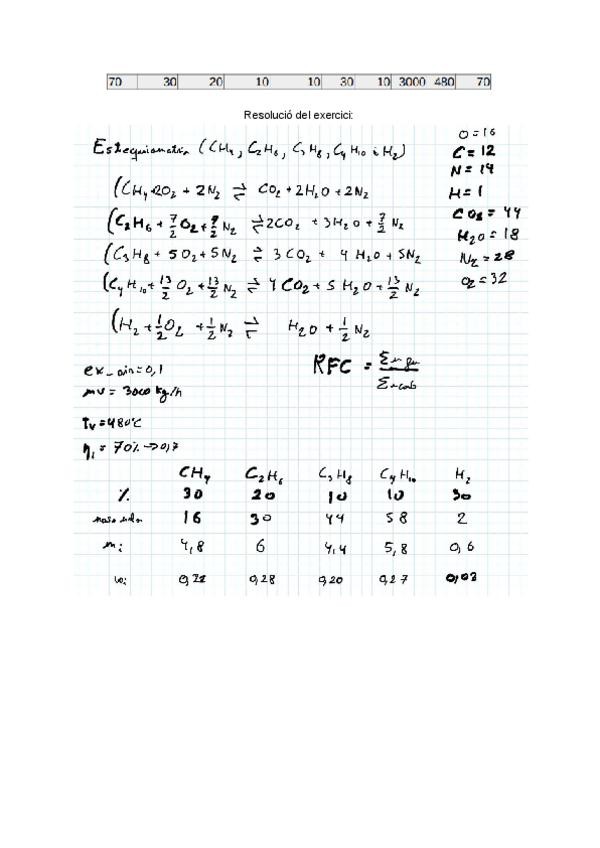 70 30 20 10 10 30 10 3000 480 70
Resolució del exercici:
Estequiometria (CH4, C2H6, C3H8, C4H10 i H2)
O=16
C=12
N=14
H=1
CO2=44
H2O=18
N2=28
O2=32
(CH4+2O2+2N2 ⇌ CO2+2H2O+2N2
(C2H6+7/2O2+7/2N2 ⇌ 2CO2+3H2O+7/2N2
(C3H8+5O2+5N2 ⇌ 3CO2+4H2O+5N2
(C4H10+13/2O2+13/2N2 ⇌ 4CO2+5H2O+13/2N2
(H2+1/2O2+1/2N2 ⇌ H2O+1/2N2
ex_air=0,1
mv=3000 kg/h
Tv=480°C
η1=70%→0,7
RFC=
CH4 C2H6 C3H8 C4H10 H2
% 30 20 10 10 30
16 30 44 58 2
mi 4,8 6 4,4 5,8 0,6
wi 0,22 0,28 0,20 0,27 0,03